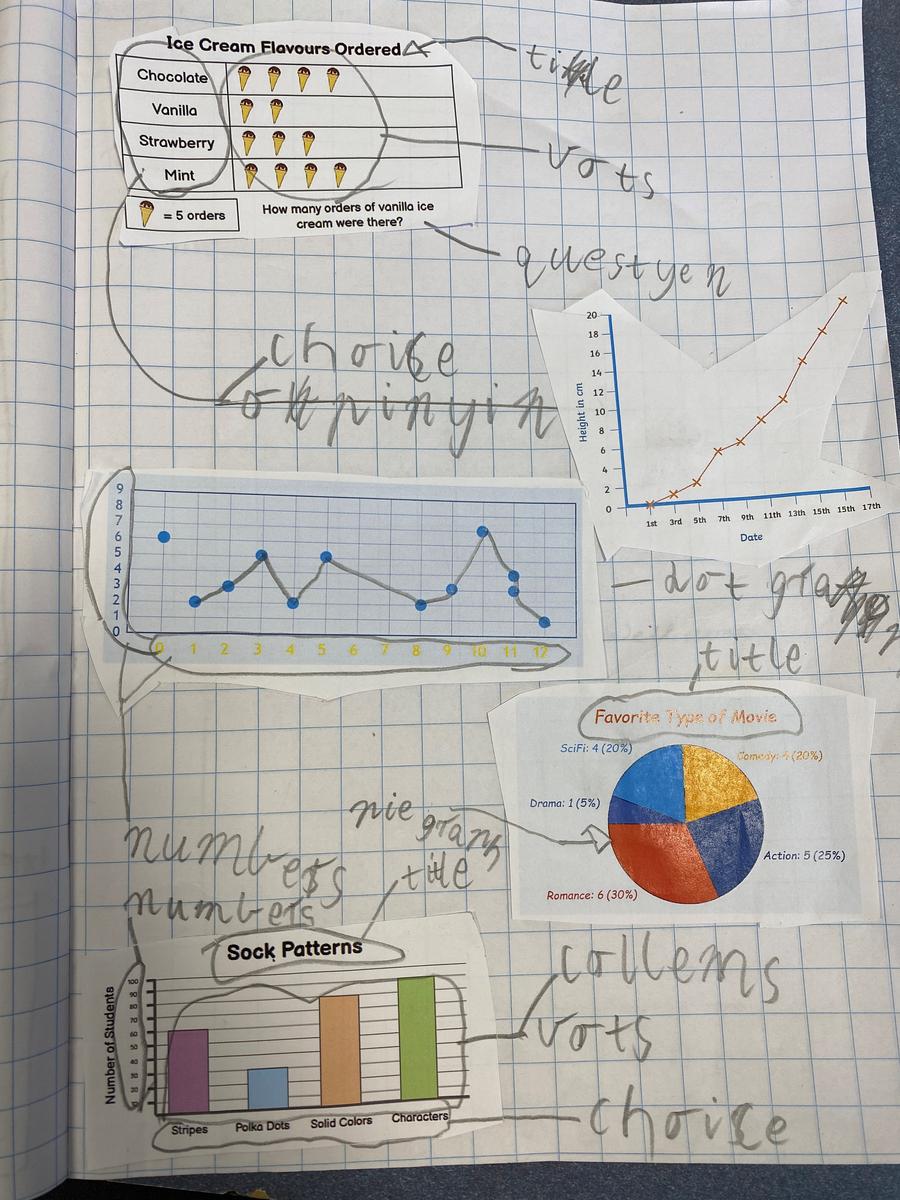 Ice Cream Flavours Ordered
title
Chocolate
Vanilla
Strawberry
Mint
vots
= 5 orders
How many orders of vanilla ice
cream were there?
questyen
choise
20
18
16
14
12
10
8
6
4
2
0
Height in cm
1st 3rd 5th 7th 9th 11th 13th 15th 15th 17th
Date
dot
9
8
7
6
5
4
3
2
1
0
0 1 2 3 4 5 6 7 8 9 10 11 12
title
Favorite Type of Movie
SciFi: 4 (20%)
Comedy: 4 (20%)
Drama: 1 (5%)
Action: 5 (25%)
Romance: 6 (30%)
pie
graph
numbers
title
numbers
Sock Patterns
Number of Students
100
90
80
70
60
50
40
30
20
Stripes Polka Dots Solid Colors Characters
collems
vots
choise